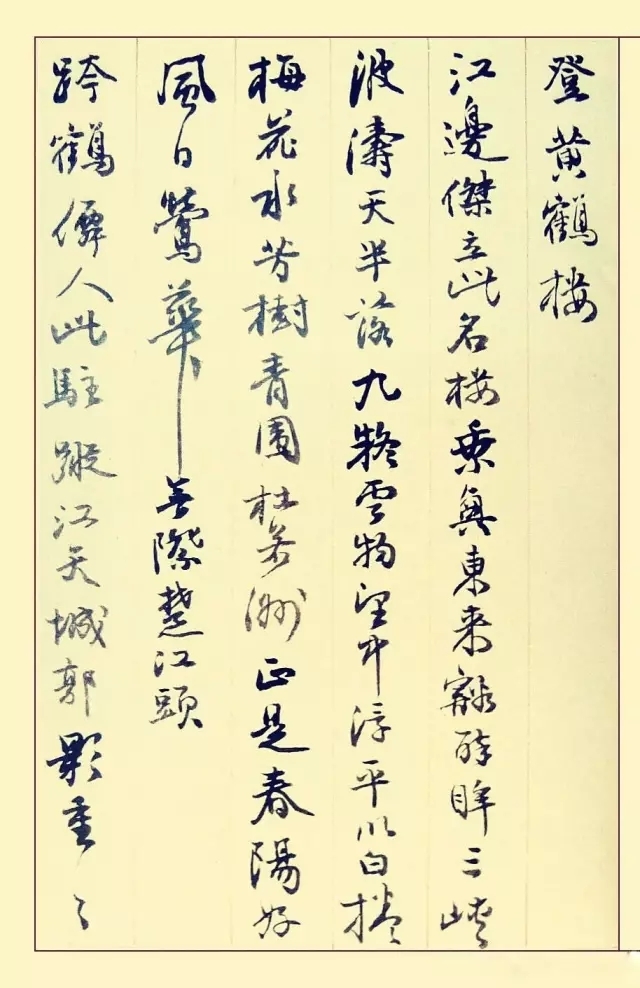 登黄鶴楼
江邊傑立此名楼乗興東来豁醉眸三峽
波濤天半落九疑雲物望中浮平川白捲
梅花水芳樹青圍杜若洲正是春陽好
風日鶯華無際楚江頭
跨鶴僊人此駐蹤江天城郭影重〻